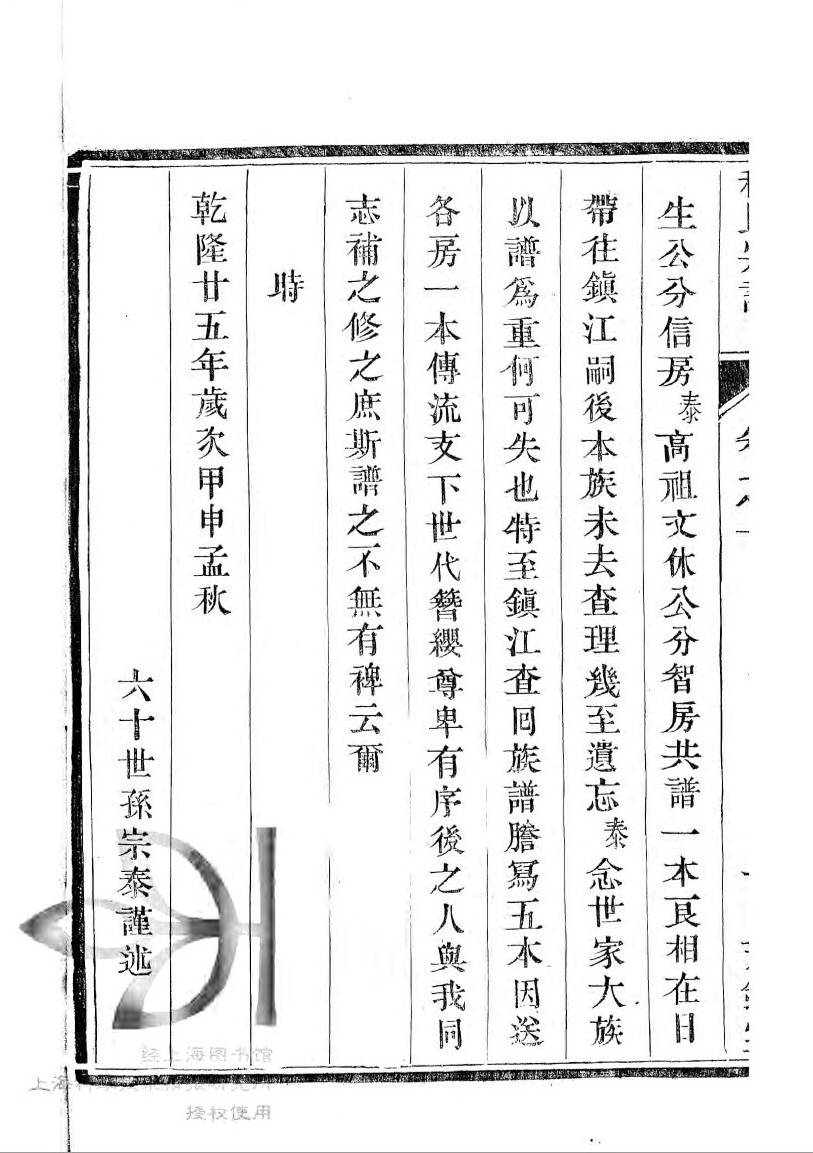 生公分信房泰高祖文休公分智房共譜一本艮相在日
帶往鎭江嗣後本族未去查理幾至遺忘泰念世家大族
以譜爲重何可失也特至鎭江查囘族譜謄寫五本因送
各房一本傳流支下世代簪纓尊卑有序後之人與我同
志補之修之庶斯譜之不無有裨云爾
時
乾隆廿五年歲次甲申孟秋
六十世孫宗泰謹述
经上海图书馆
上海
授权使用